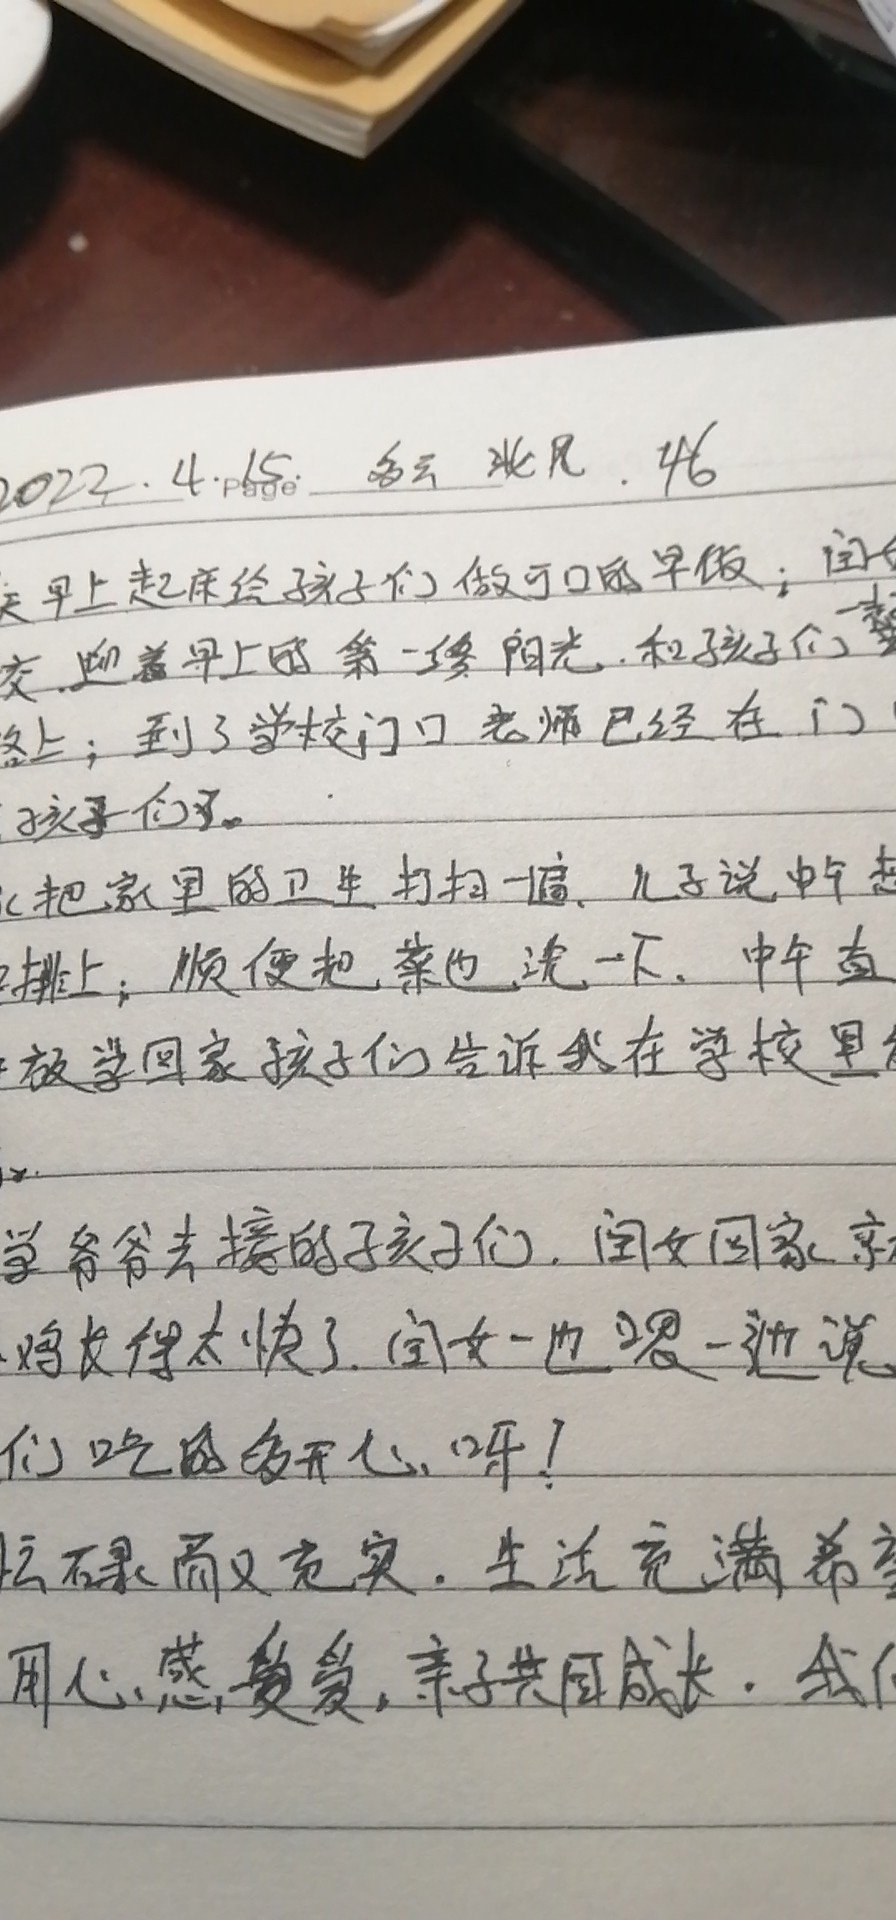 2022.4.15. Page 多云 北风.46
早上起床给孩子们做可口的早饭;闺女
迎着早上的第一缕阳光.和孩子们一起
路上;到了学校门口老师已经在门口
孩子们了。
把家里的卫生打扫一遍、儿子说中午想
排上;顺便把菜也洗一下.中午直
放学回家孩子们告诉我在学校里
学爷爷去接的孩子们.闺女回家
鸡长得太快了.闺女一边喂一边说
们吃的多开心呀!
忙碌而又充实.生活充满希望
用心感受爱,亲子共同成长.我们